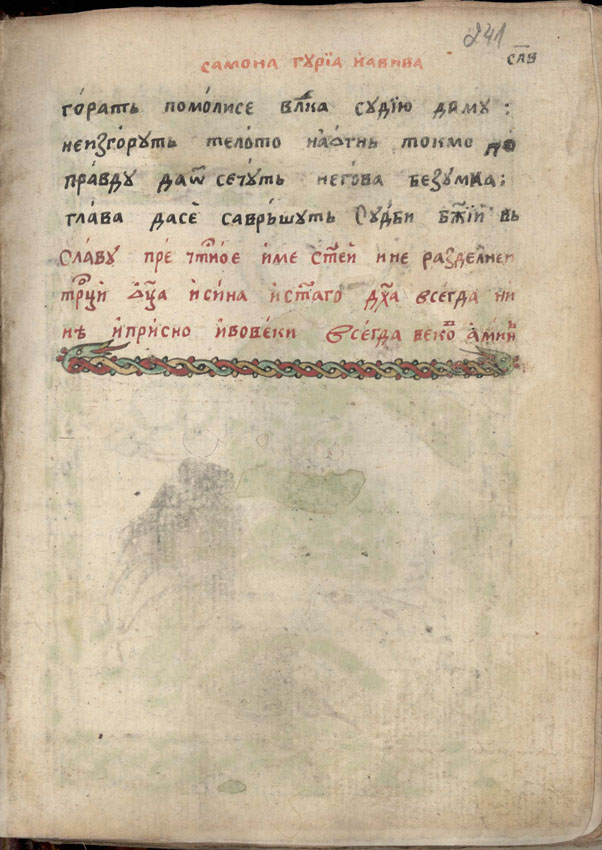 241
самона гурїа иавива
слв
гора́ть помо́лисе влⷣка судїю да́му :
неизго́руть тело́то на́ѻгнь токмо до
пра́вду даѿ сечу́ть него́ва безумна ;
гла́ва дасѐ саврьшуть Ѹу́дби бж҃їй вь
сла́ву пре чⷭ҇тно́е и́ме ст҃е́й ине раздел́неи
трⷪ҇ци ѻц҃а иси́на ист҃аго дх҃а все́гда ни
нѣ и́при́сно и́вове́ки все́гда веко̑ⷡ ами́нⸯ